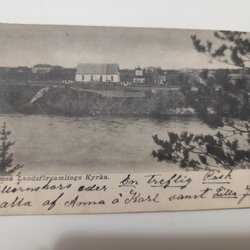 meå Landsförsamlings Kyrka.
En treflig Påsk
tillönskas eder
alla af Anna & Karl samt Lilla